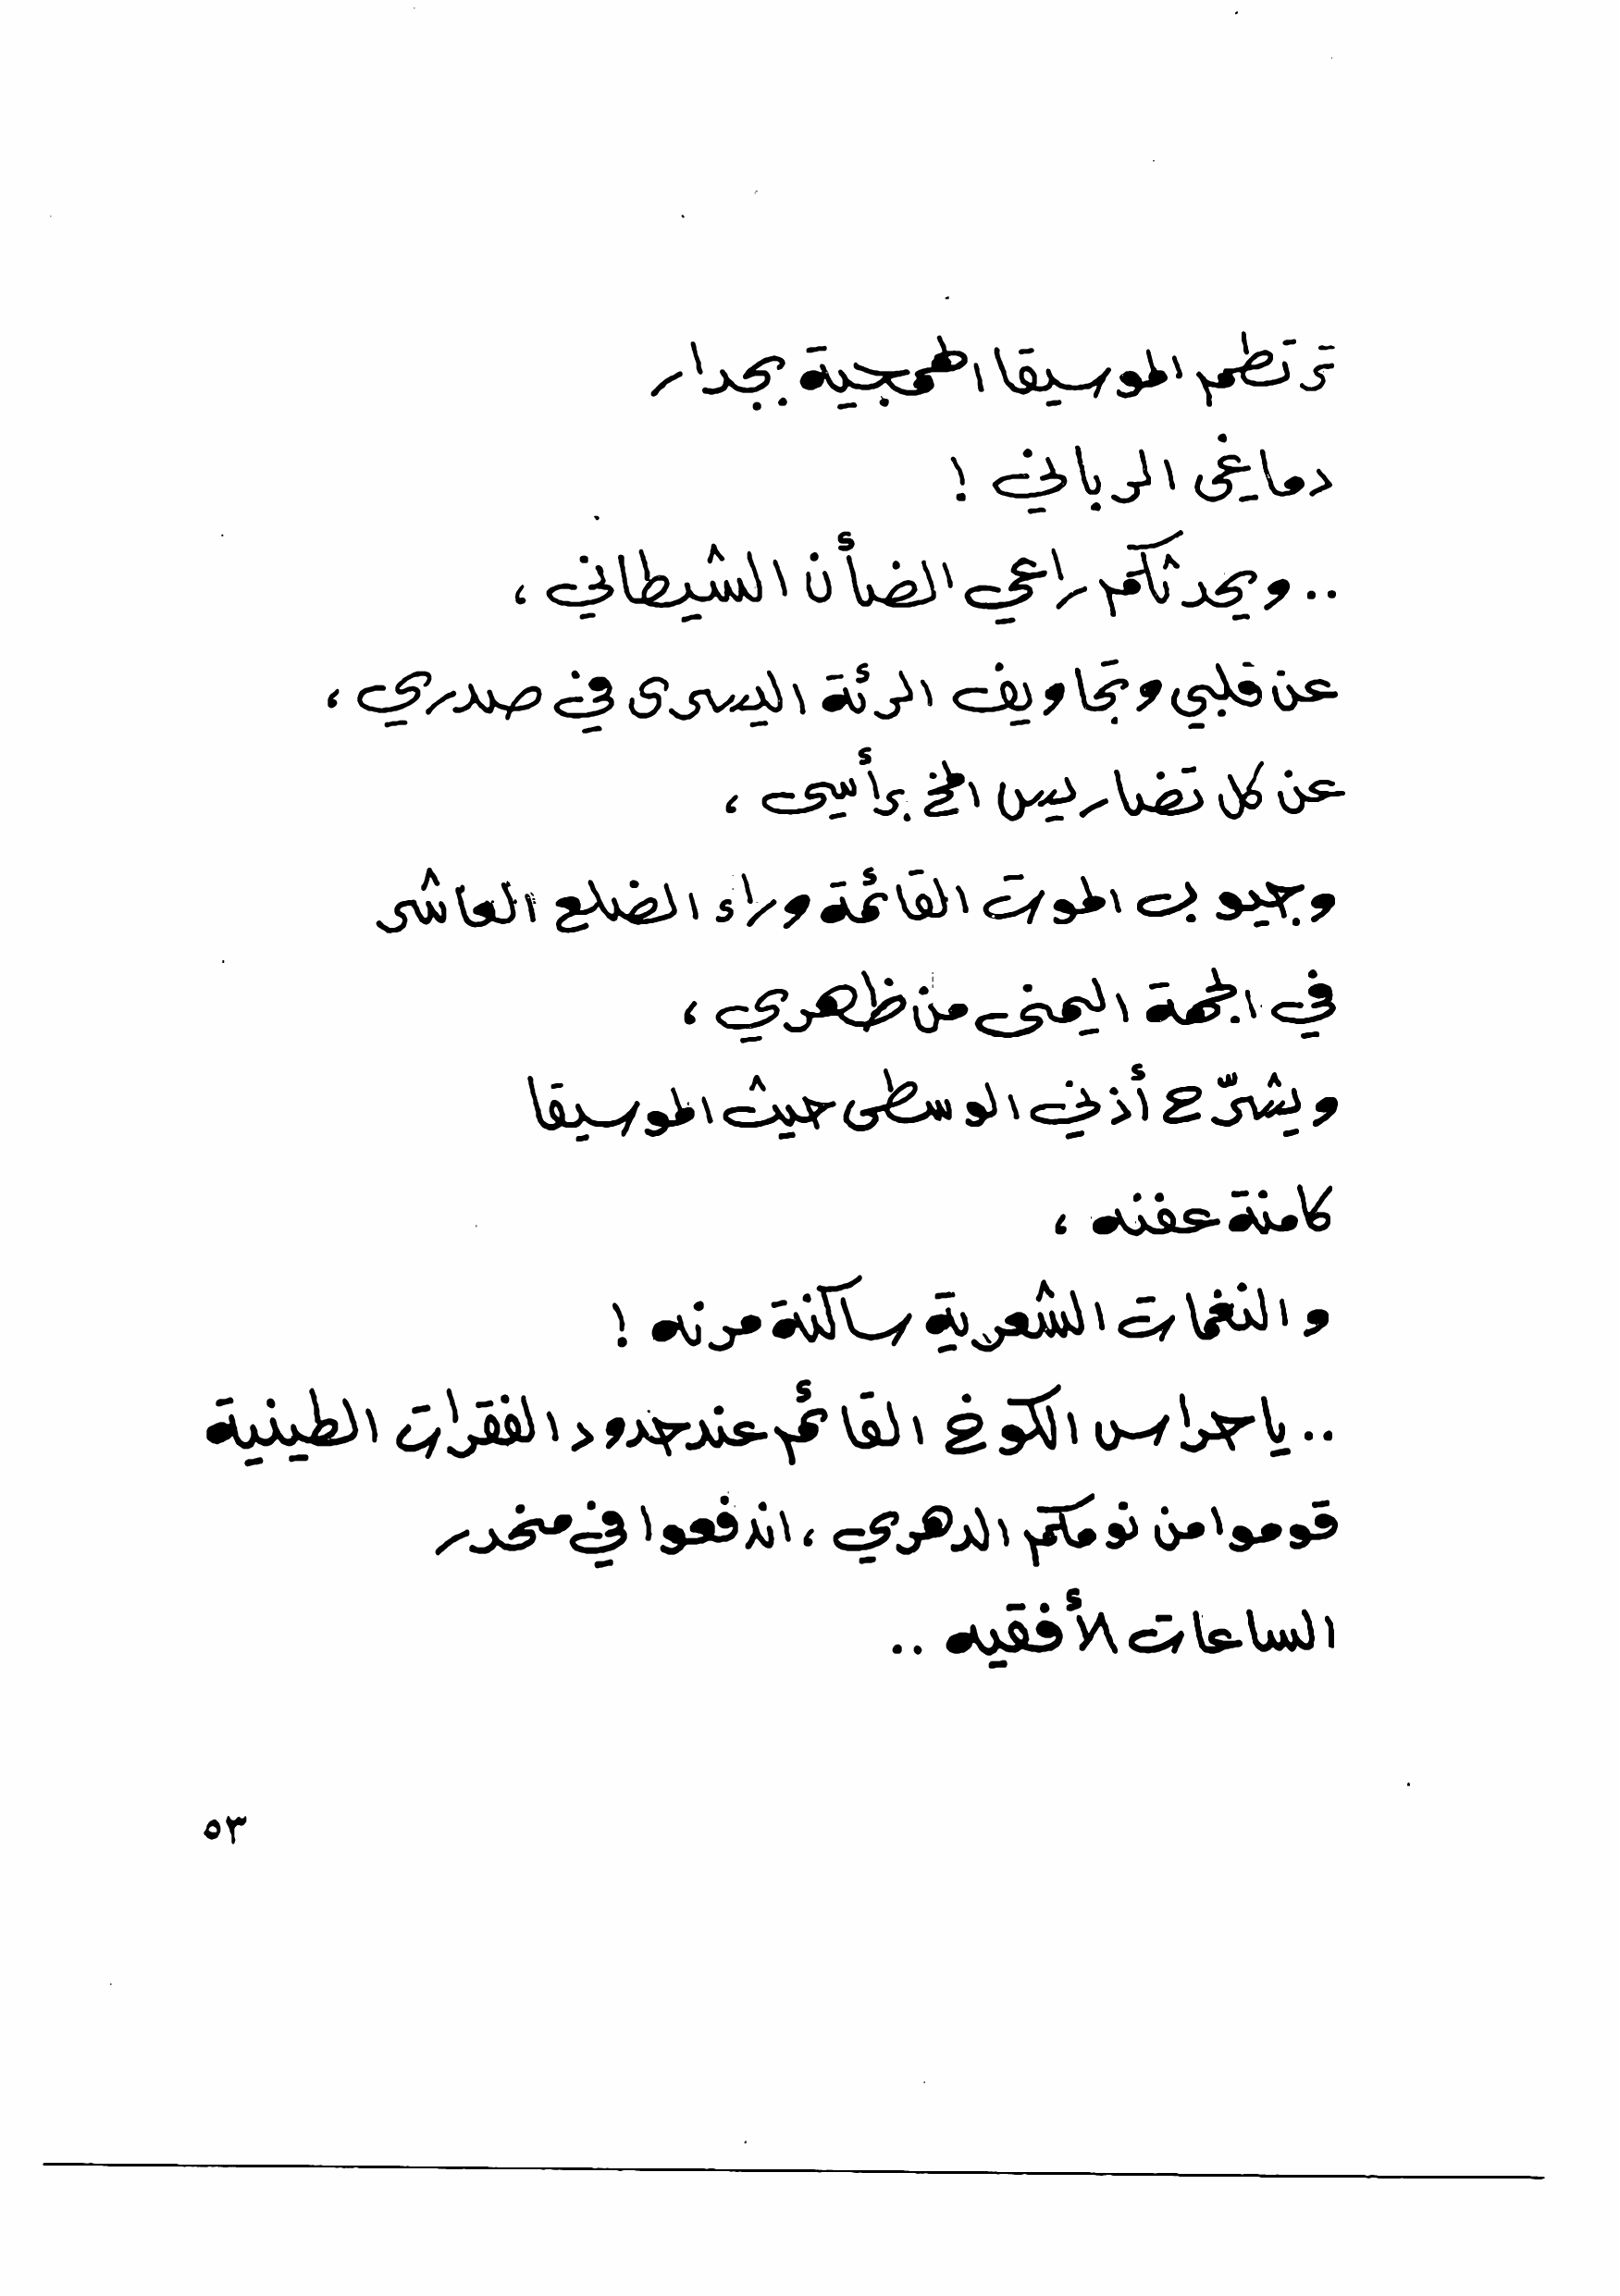 ترتطم الموسيقا الهمجية بجدار
دماغي الرباني !
.. ويحدثكم راعي الضأن الشيطاني ،
عن قلبي وتجاويف الرئة اليسرى في صدري ،
عن كل تضاريس المخ برأسي ،
وجيوب الموت القائمة وراء الضلع العاشر
في الجهة اليمنى من ظهري ،
ويشرّح أذني الوسطى حيث الموسيقا
كامنة عفنه ،
والنغمات الشعرية ساكنة مرنه !
.. يا حراس الكوخ القائم عند حدود الفقرات الطينية
قوموا من نومكم الدهري ، اندفعوا في منحدر
الساعات الأفقيه ..
٥٣